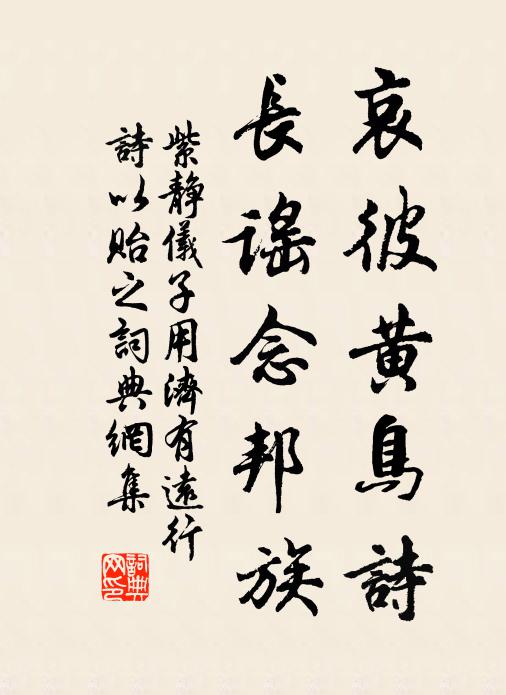 哀彼黄鳥詩
長謠念邦族
紫静儀子用濟有遠行
詩以貽之詞典網集
詞典
网印